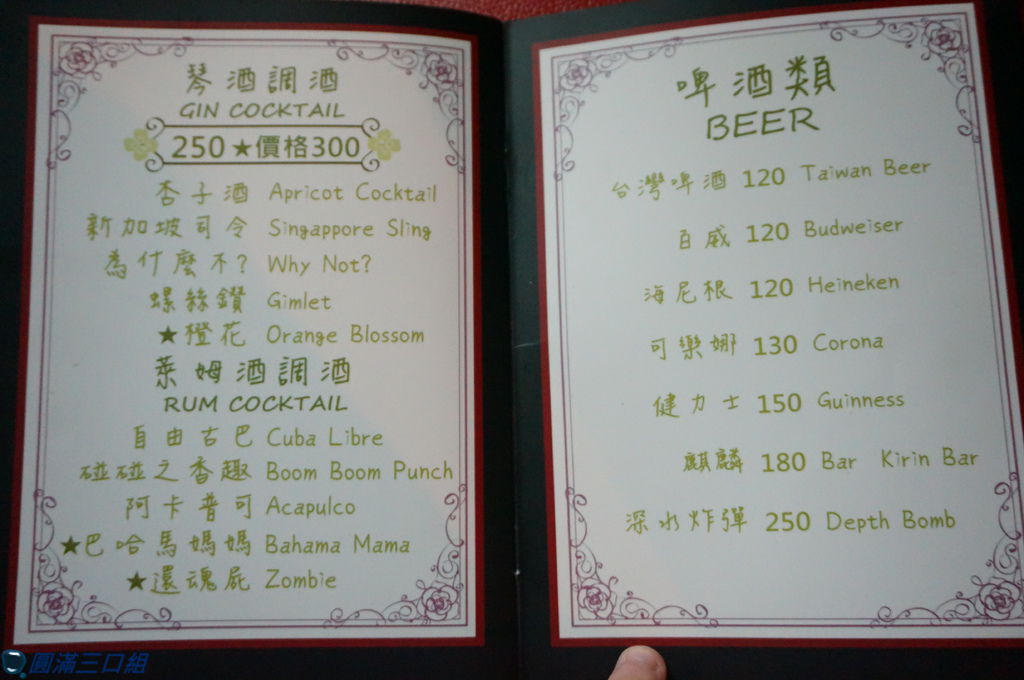 琴酒調酒
GIN COCKTAIL
250 ★價格300
杏子酒 Apricot Cocktail
新加坡司令 Singappore Sling
為什麼不? Why Not?
螺絲鑽 Gimlet
★橙花 Orange Blossom
萊姆酒調酒
RUM COCKTAIL
自由古巴 Cuba Libre
碰碰之香趣 Boom Boom Punch
阿卡普可 Acapulco
★巴哈馬媽媽 Bahama Mama
★還魂屍 Zombie
啤酒類
BEER
台灣啤酒 120 Taiwan Beer
百威 120 Budweiser
海尼根 120 Heineken
可樂娜 130 Corona
健力士 150 Guinness
麒麟 180 Bar Kirin Bar
深水炸彈 250 Depth Bomb
圓滿三口組